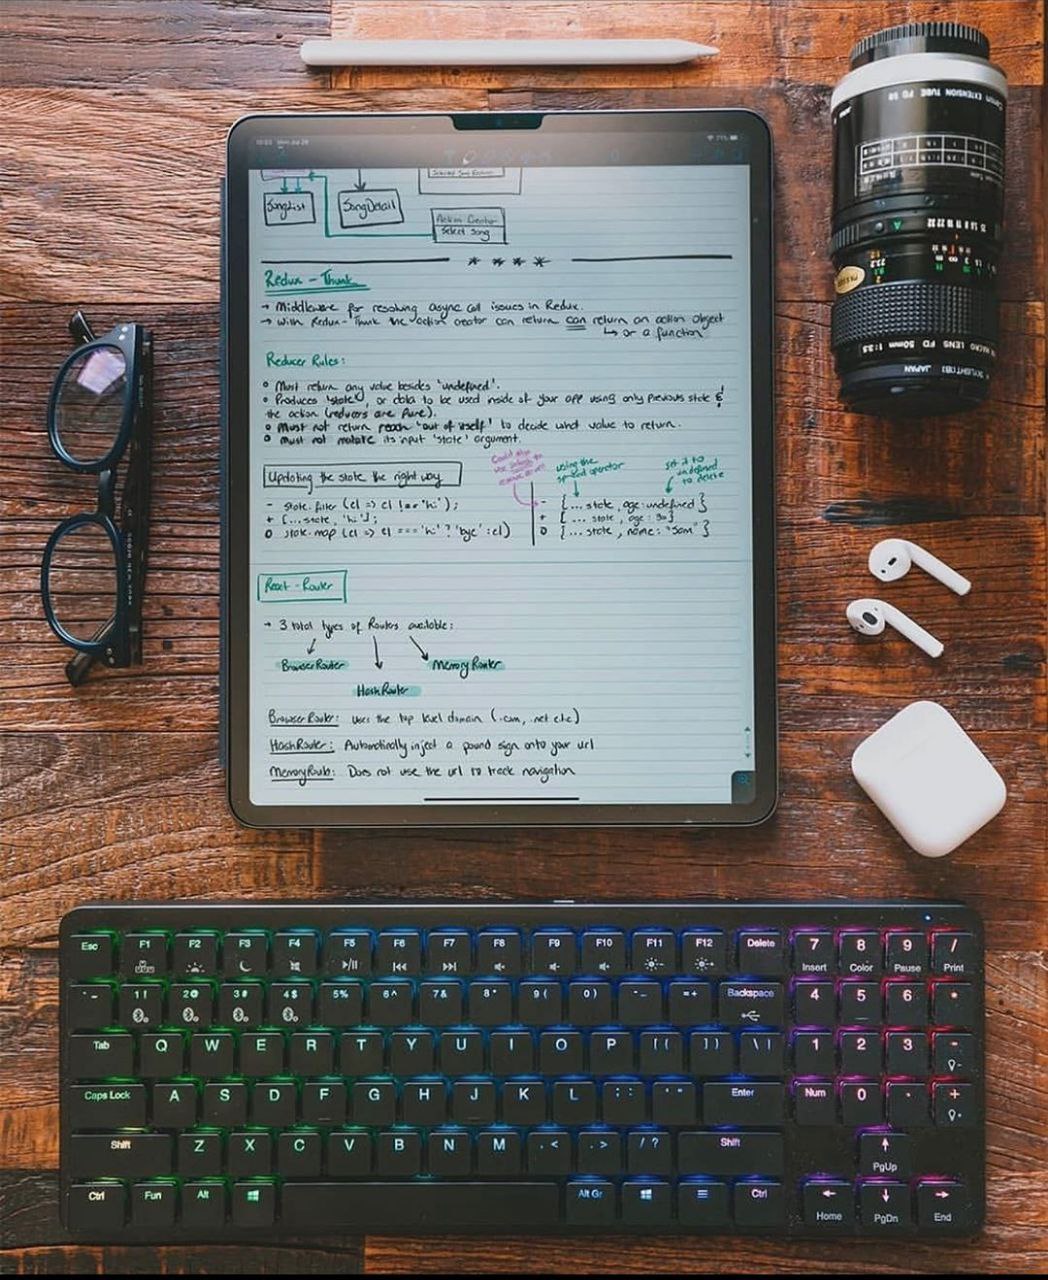 10:53 Mon Jul 29
71%
SongList
SongDetail
Action Creator
Select Song
Redux - Thunk
→ Middleware for resolving async call issues in Redux.
→ with Redux-Thunk the action creator can return can return an action object
↳ or a function
Reducer Rules:
o Must return any value besides 'undefined'.
o Produces 'state', or data to be used inside of your app using only previous state &
the action (reducers are Pure).
o Must not return reach 'out of itself' to decide what value to return.
o Must not mutate its input 'state' argument.
Updating the state the right way
- state.filter (el => el !== 'hi');
+ [...state, 'hi'];
o state.map (el => el === 'hi' ? 'bye' : el)
using the
spread operator
set it to
undefined
to delete
- {...state, age: undefined }
+ {...state, age: 30}
o {...state, name: "Sam" }
React - Router
→ 3 total types of Routers available:
BrowserRouter
MemoryRouter
HashRouter
BrowserRouter: Uses the top level domain (.com, .net etc)
HashRouter: Automatically inject a pound sign onto your url
MemoryRoute: Does not use the url to track navigation
Canon EXTENSION TUBE FD 50
MACRO LENS FD 50mm 1:3.5
SKYLIGHT(1B) JAPAN
Esc F1 F2 F3 F4 F5 F6 F7 F8 F9 F10 F11 F12 Delete 7 8 9 /
Insert Color Pause Print
1! 2@ 3# 4$ 5% 6^ 7& 8* 9( 0) -_ =+ Backspace 4 5 6 *
Tab Q W E R T Y U I O P [{ ]} \| 1 2 3 -
Caps Lock A S D F G H J K L ;: '" Enter Num 0 . +
Shift Z X C V B N M ,< .> /? Shift
PgUp
Ctrl Fun Alt Alt Gr Ctrl
Home PgDn End